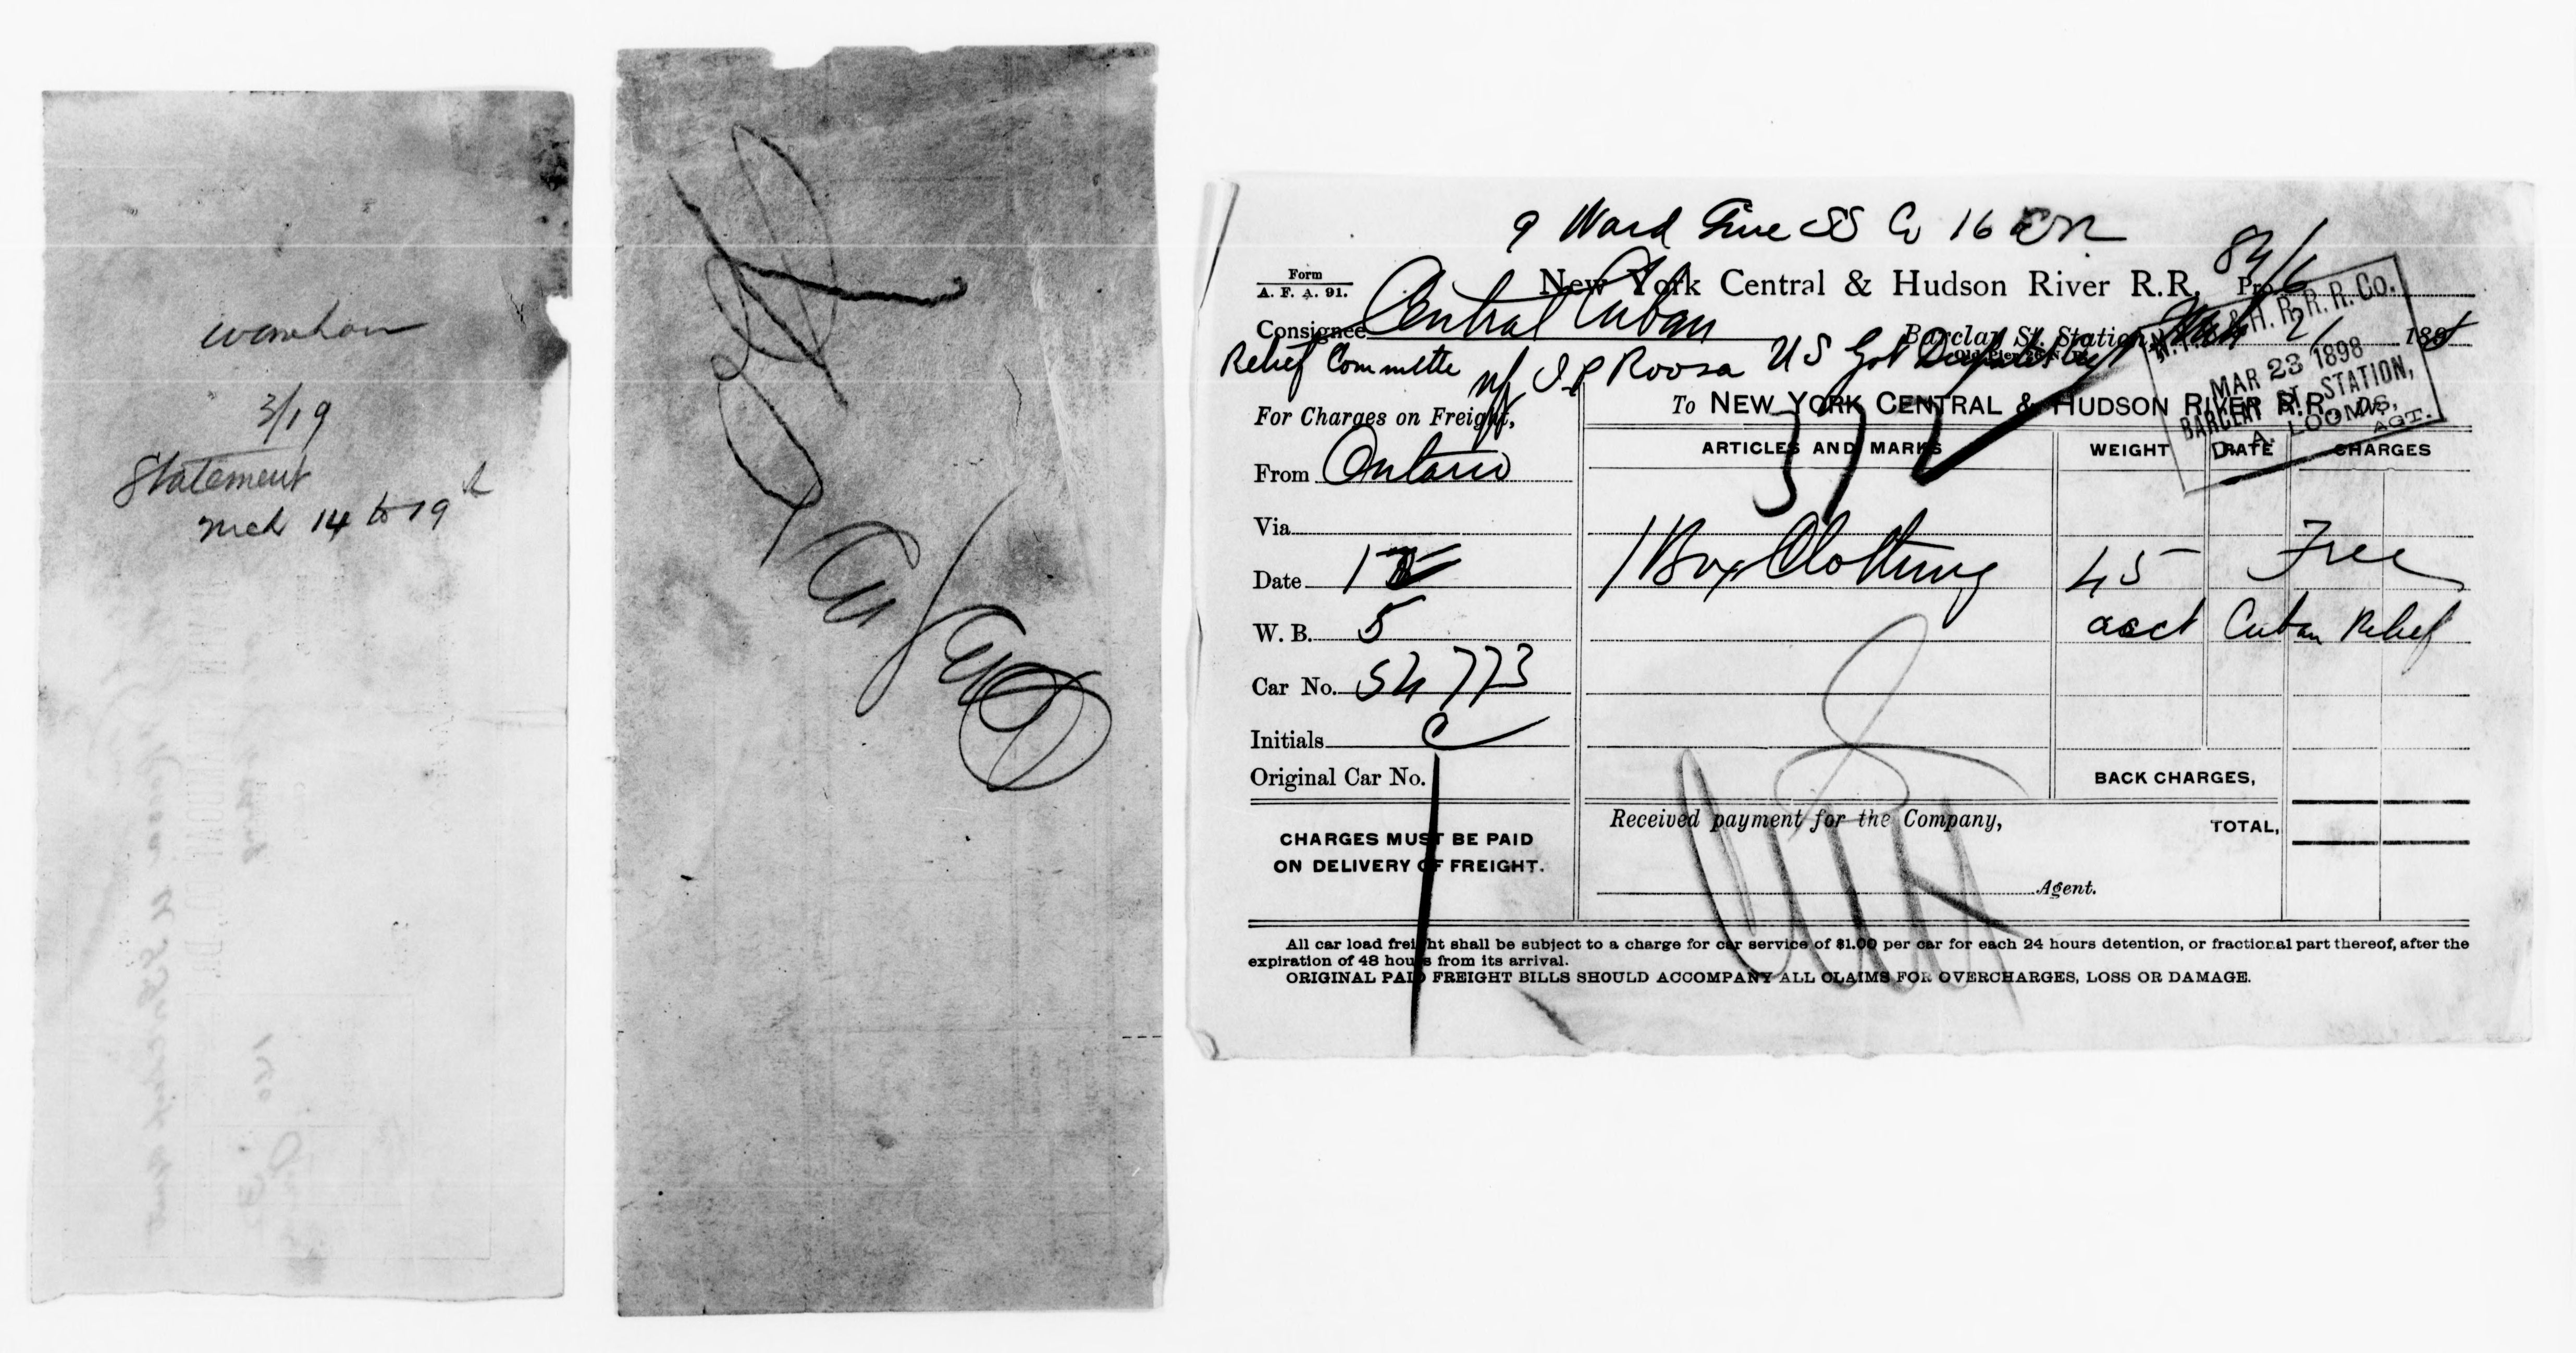 3/19
Statement
Mch 14 to 19th
9 Ward Line SS Co 16 ER
Form
A. F. A. 91.
New York Central & Hudson River R.R. Pro.
Consignee Central Cuban
Barclay St. Station, 21 1898
Relief Committe J P Roosa US
N.Y.C. & H. R. R. R. Co.
MAR 23 1898
BARCLAY ST. STATION,
D. A. LOOMIS,
AGT.
For Charges on Freight,
To NEW YORK CENTRAL & HUDSON RIVER R.R., DR.
372
ARTICLES AND MARKS WEIGHT RATE CHARGES
From Ontario
Via
Date
1 Box Clothing 45 Free
W. B. 5
acct Cuban Relief
Car No. 54773
Initials C
Original Car No.
BACK CHARGES,
CHARGES MUST BE PAID
ON DELIVERY OF FREIGHT.
Received payment for the Company,
TOTAL,
Agent.
All car load freight shall be subject to a charge for car service of $1.00 per car for each 24 hours detention, or fractional part thereof, after the
expiration of 48 hours from its arrival.
ORIGINAL PAID FREIGHT BILLS SHOULD ACCOMPANY ALL CLAIMS FOR OVERCHARGES, LOSS OR DAMAGE.